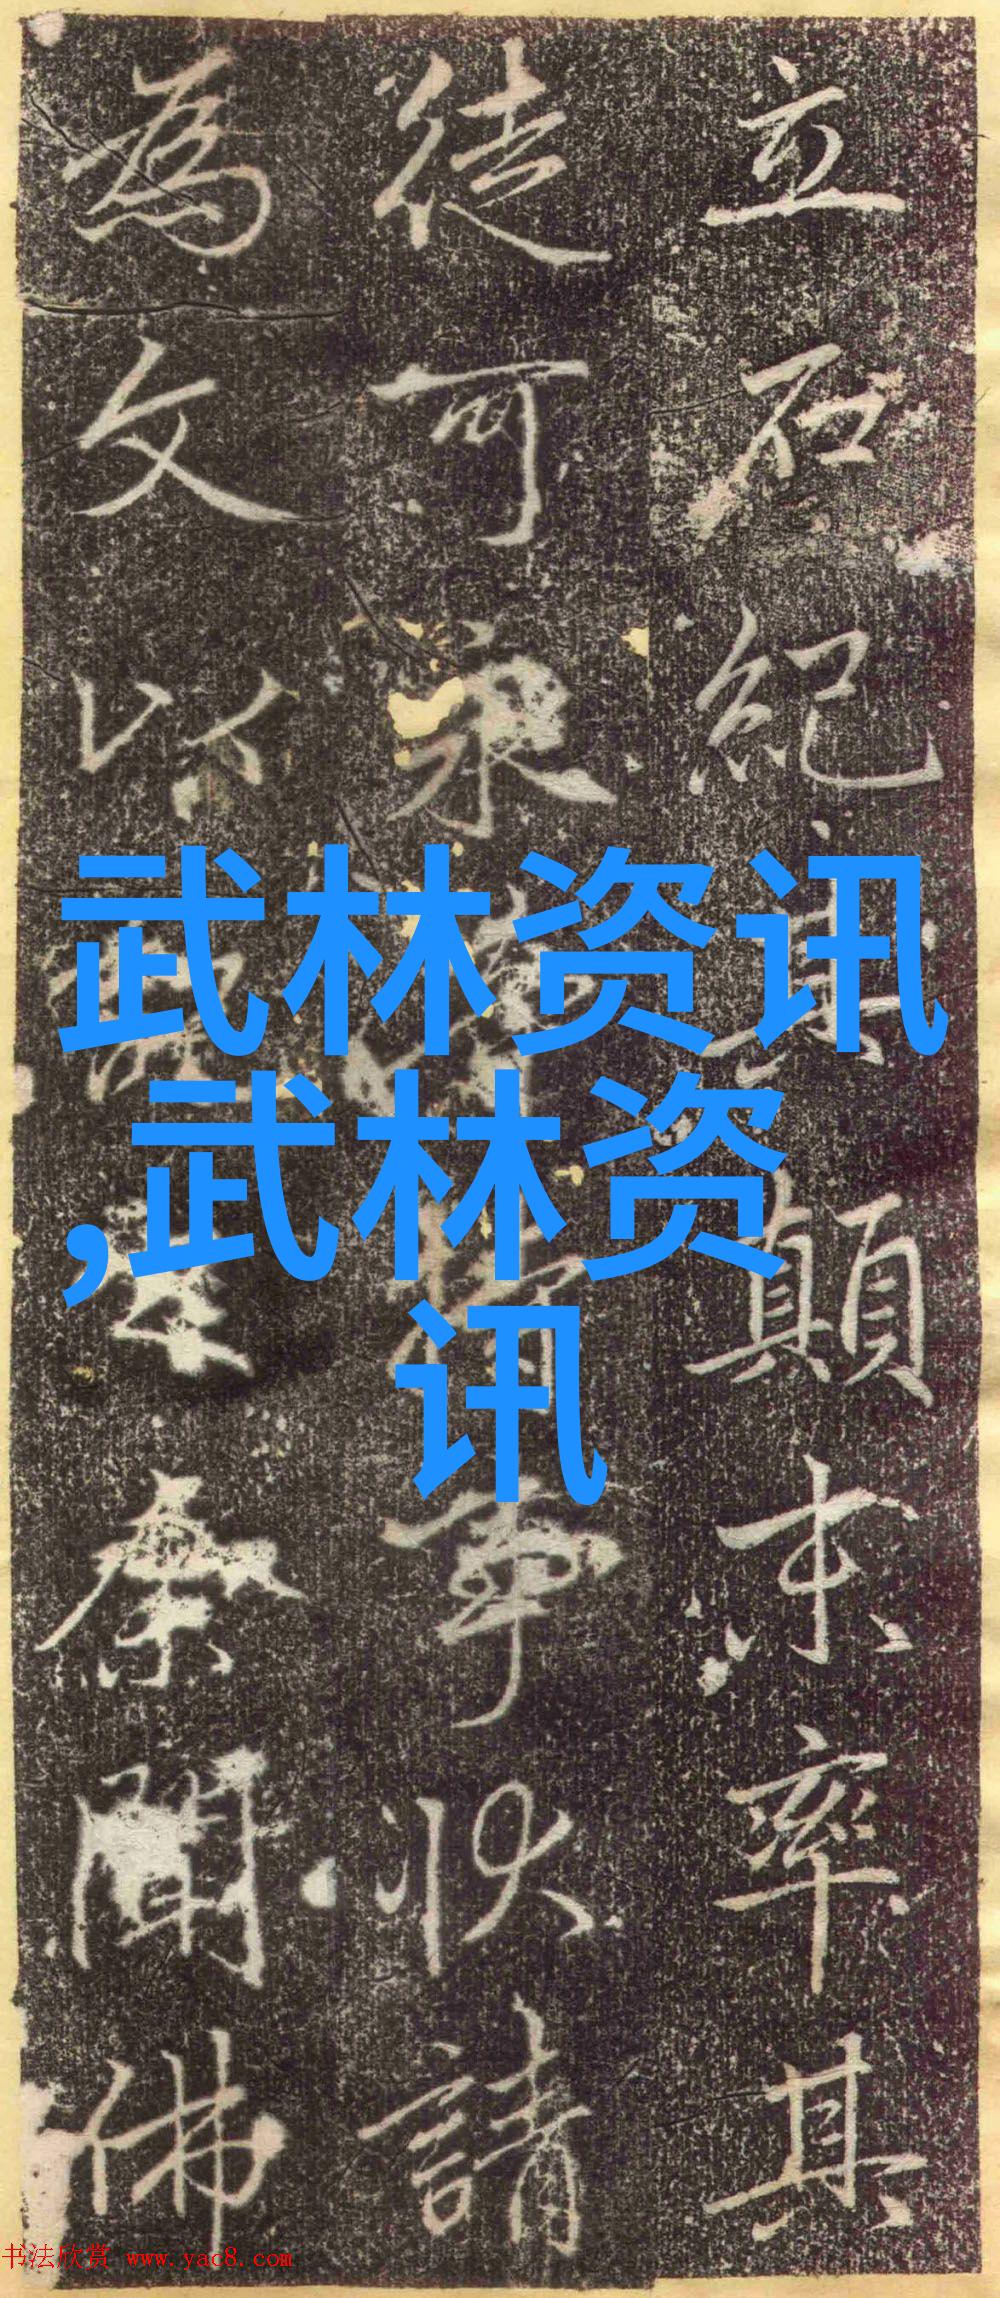 立石紀其顛末率其
徒可事状請
為文以聞佛
武林资讯
,武林资
讯
书法欣赏 www.yac8.com